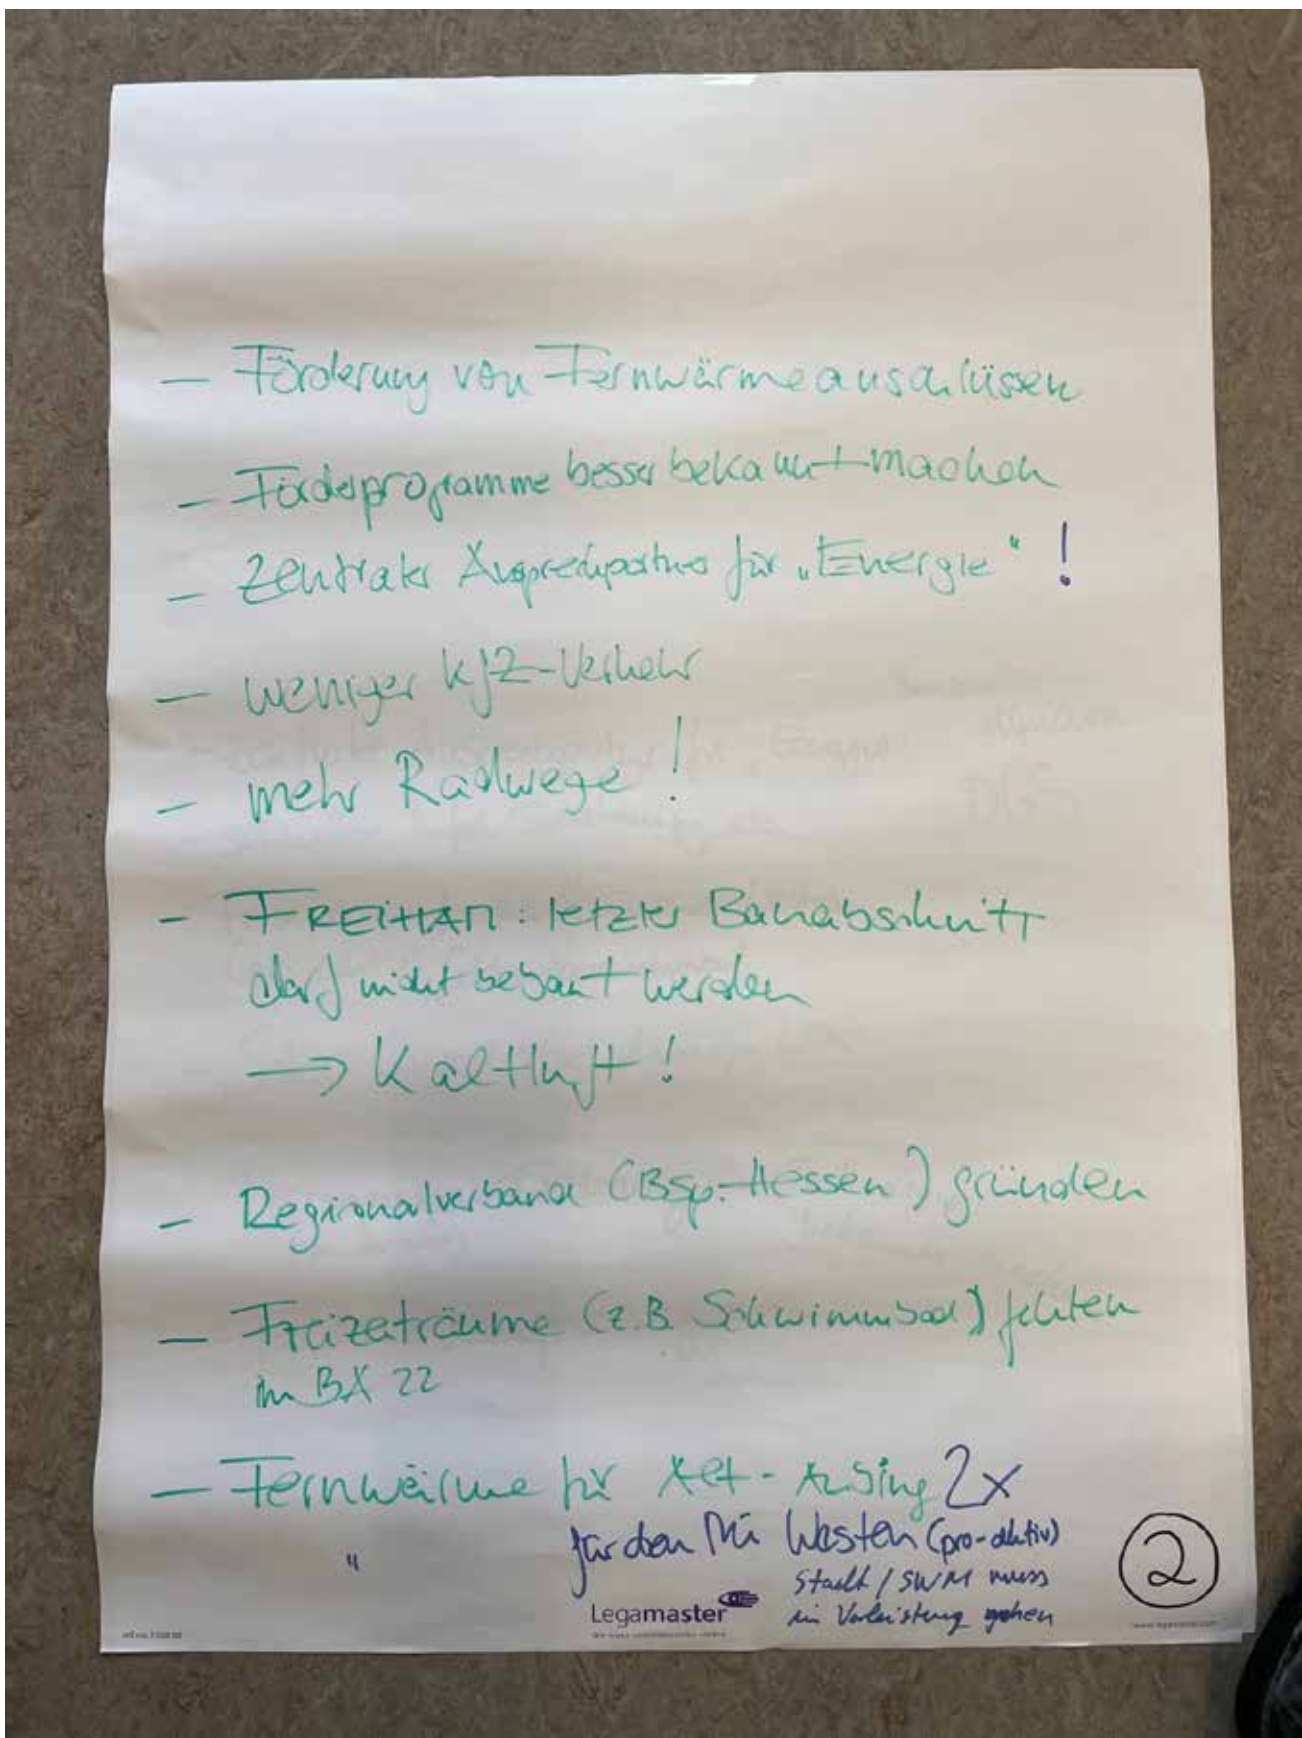 – Förderung von Fernwärmeanschlüssen
– Förderprogramme besser bekannt machen
– Zentraler Ansprechpartner für „Energie“ !
– weniger KfZ-Verkehr
– mehr Radwege !
– FREIHAM : letzter Bauabschnitt
darf nicht bebaut werden
→ Kaltluft !
– Regionalverband (Bsp. Hessen) gründen
– Freizeiträume (z.B. Schwimmbad) fehlen
im BA 22
– Fernwärme für Alt-Aubing 2x
" für den Mü Westen (pro-aktiv)
Stadt / SWM muss
in Vorleistung gehen
2
Legamaster